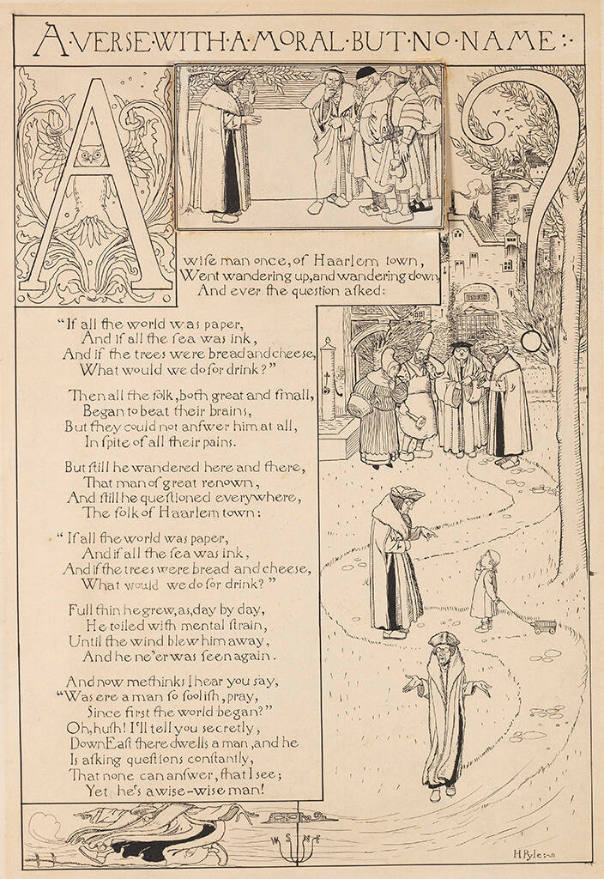 A·VERSE·WITH·A·MORAL·BUT·NO·NAME:·
A
?
wiſe man once, of Haarlem town,
Went wandering up, and wandering down,
And ever the queſtion aſked:
"If all the world was paper,
And if all the ſea was ink,
And if the trees were bread and cheeſe,
What would we do for drink?"
Then all the folk, both great and ſmall,
Began to beat their brains,
But they could not anſwer him at all,
In ſpite of all their pains.
But ſtill he wandered here and there,
That man of great renown,
And ſtill he queſtioned everywhere,
The folk of Haarlem town:
"If all the world was paper,
And if all the ſea was ink,
And if the trees were bread and cheeſe,
What would we do for drink?"
Full thin he grew, as, day by day,
He toiled with mental ſtrain,
Until the wind blew him away,
And he ne'er was ſeen again.
And now methinks I hear you ſay,
"Was ere a man ſo fooliſh, pray,
Since firſt the world began?"
Oh, huſh! I'll tell you ſecretly,
Down Eaſt there dwells a man, and he
Is aſking queſtions conſtantly,
That none can anſwer, that I ſee;
Yet he's a wise-wise man!
W S N E
H Pyle